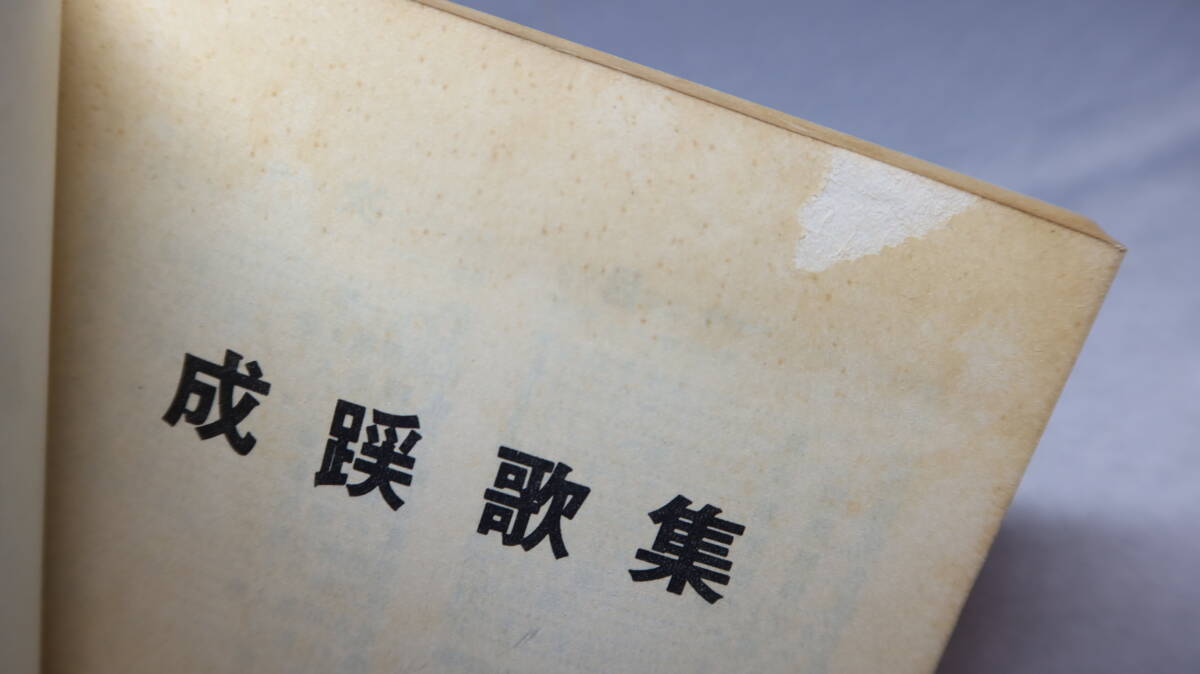 成蹊歌集